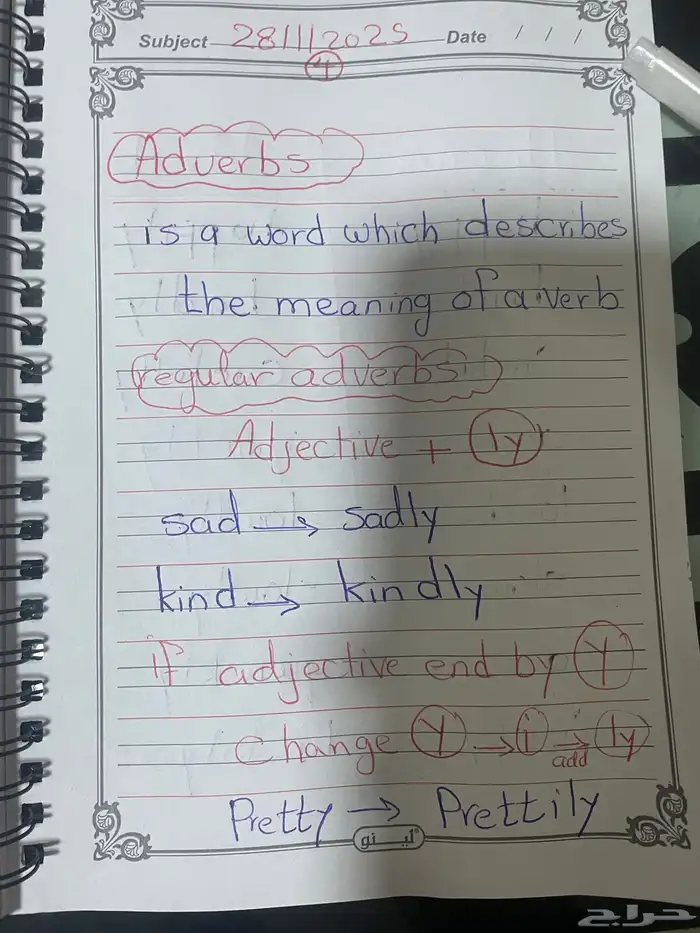 Subject 28/11/2025 Date / / /
4
Adverbs
is a word which describes
the meaning of a verb
regular adverbs
Adjective + ly
sad → sadly
kind → kindly
if adjective end by Y
Change Y → i → ly
add
Pretty → Prettily
حراج